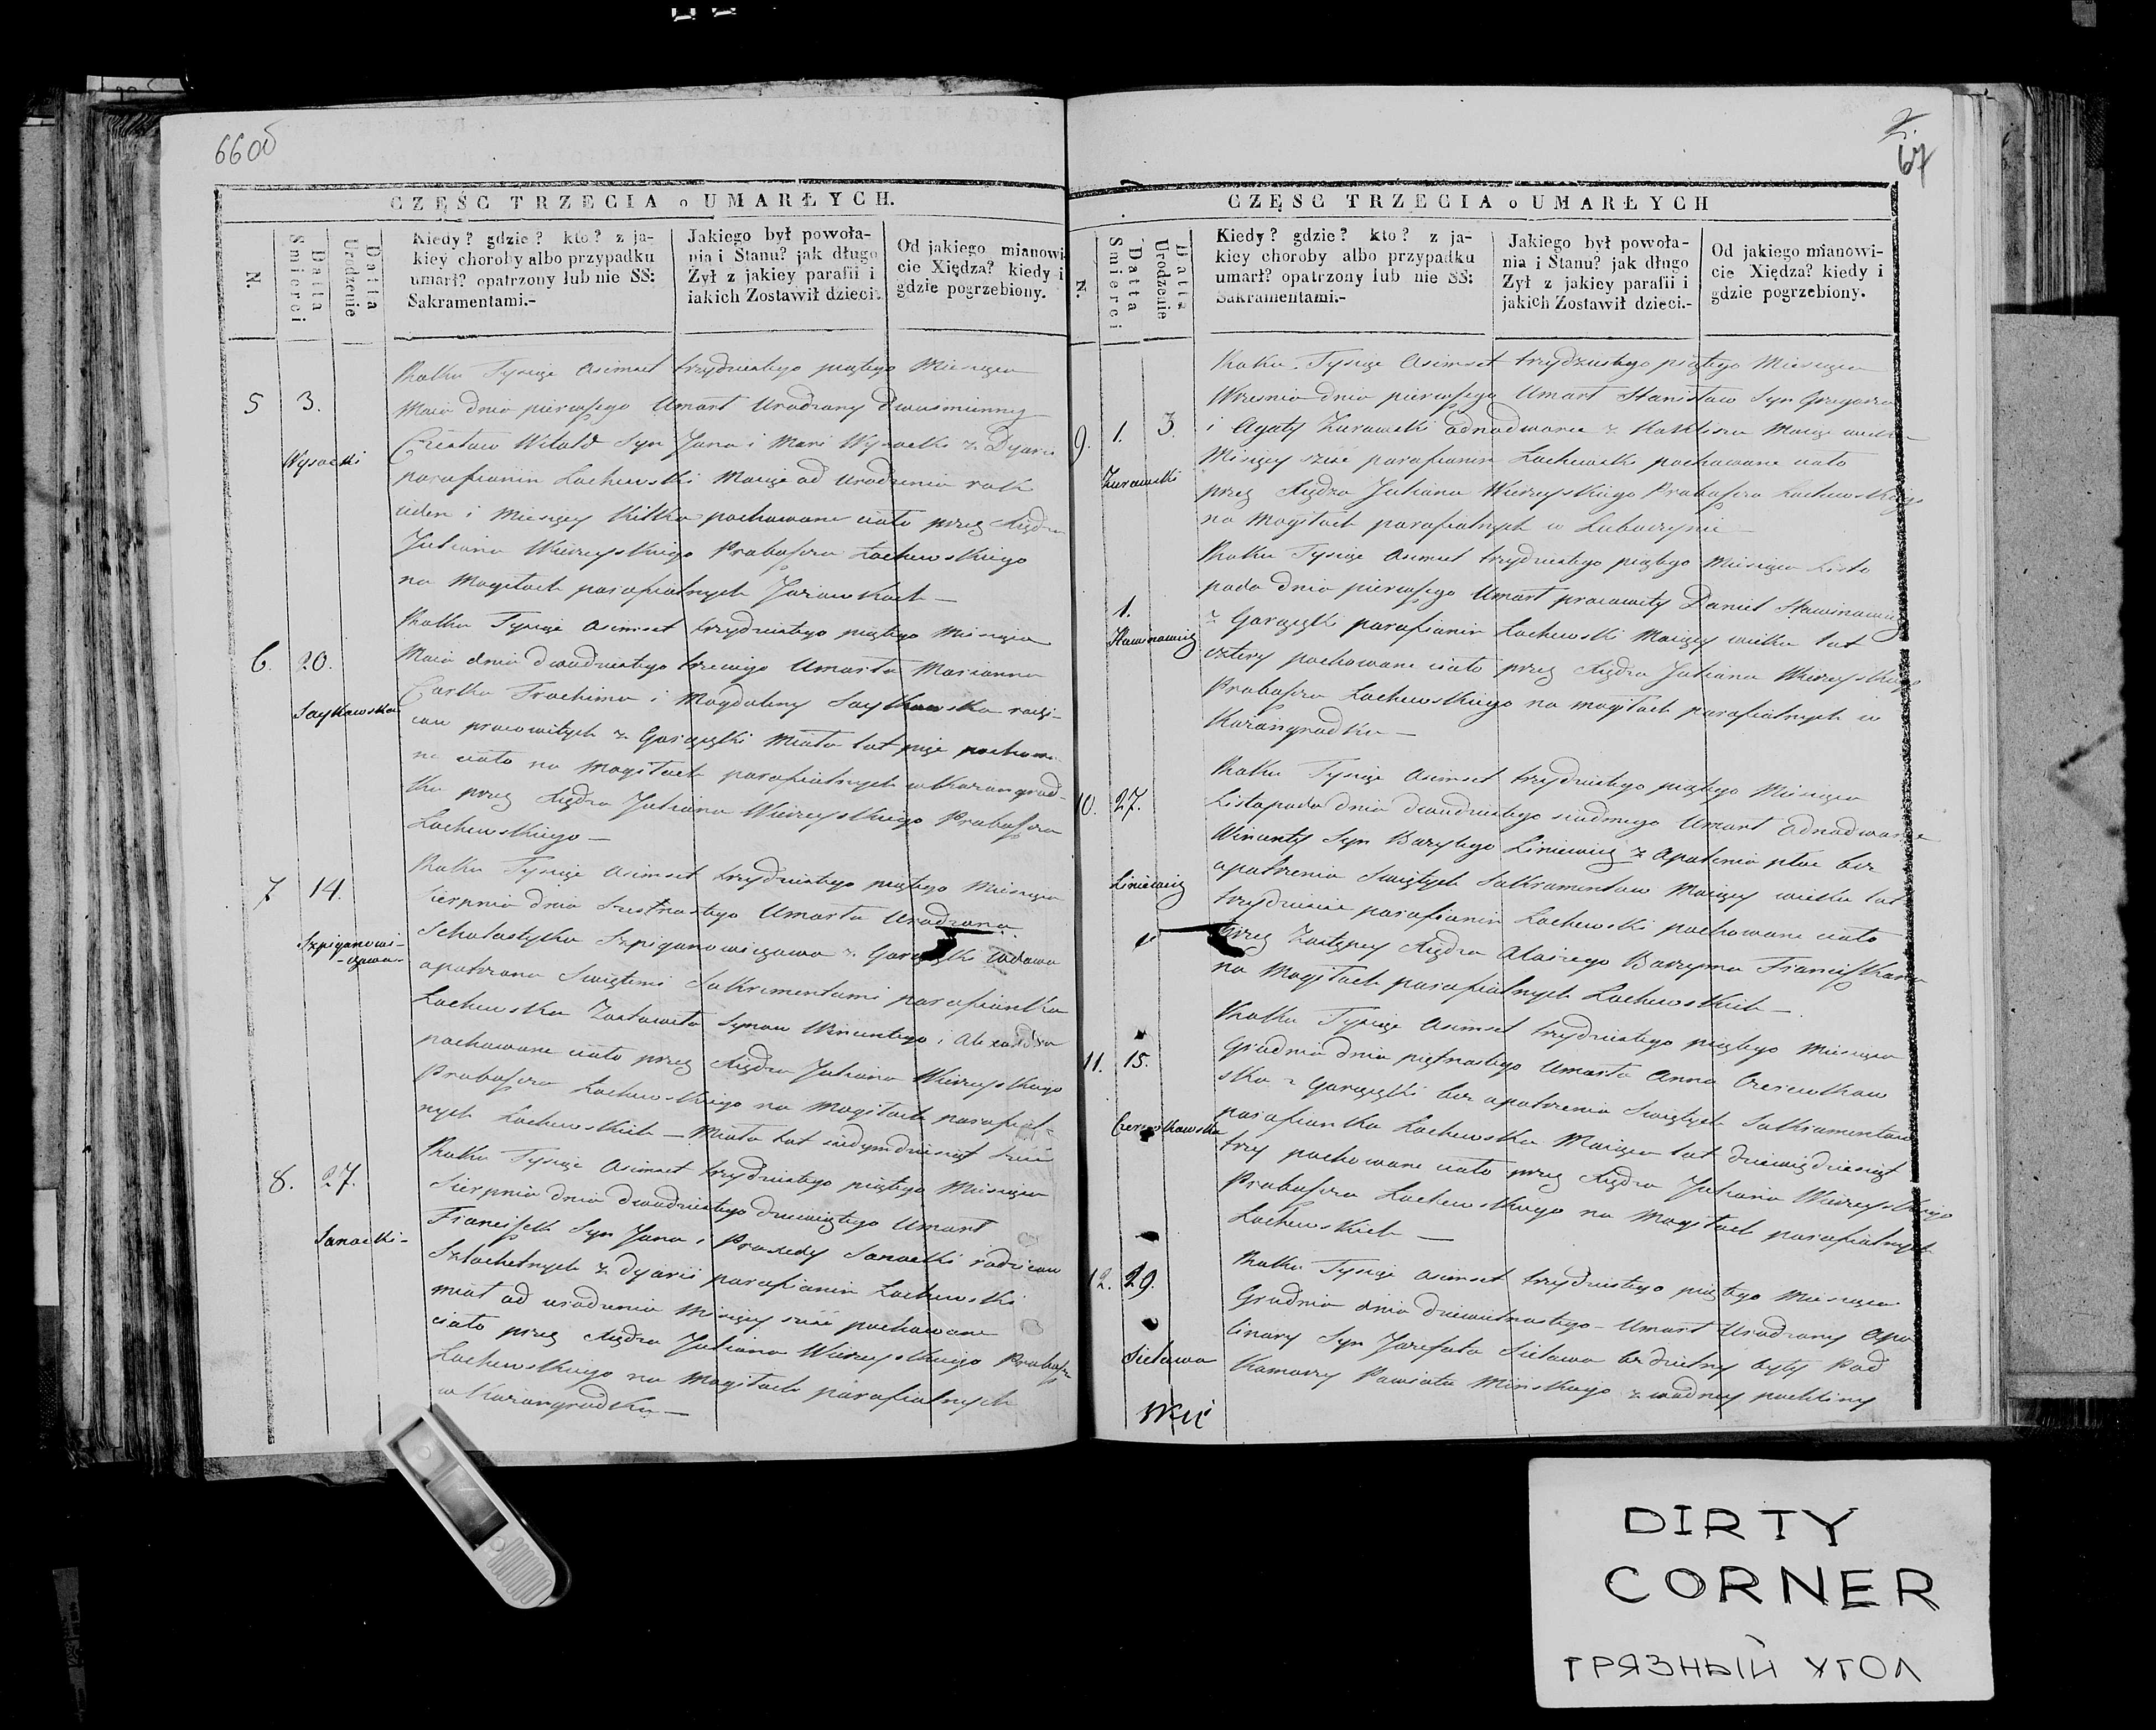 660б
CZĘSC TRZECIA o UMARŁYCH.
N.
Datta Smierci
Datta Urodzenie
Kiedy? gdzie? kto? z ja-
kiey choroby albo przypadku
umarł? opatrzony lub nie SS:
Sakramentami.-
Jakiego był powoła-
nia i Stanu? jak długo
Żył z jakiey parafii i
iakich Zostawił dzieci.
Od jakiego mianowi-
cie Xiędza? kiedy i
gdzie pogrzebiony.
5 3.
Wysocki
Roku Tysiąc Osimset trzydziestego piątego Miesięca
Maia dnia pierwszego Umarł Urodzony dwuimienny
Czesław Witold Syn Jana i Mari Wysocki z Dyarii
parafianin Łachewski Maiąc od urodzenia rok
ieden i Miesięcy kilka pochowane ciało przez Xiędza
Juliana Wierzyskiego Probaszcza Łachewskiego
na Mogiłach parafialnych
6. 20.
Saykowska
Roku Tysiąc Osimset trzydziestego piątego Miesięca
Maia dnia dwudziestego trzeciego Umarła Marianna
Corka Trochima i Magdaleny Saykowska rodzi-
cow pracowitych z Miała lat pięć pochowa-
ne ciało na Mogiłach parafialnych w Kożangrod-
ku przez Xiędza Juliana Wierzyskiego Probaszcza
Łachewskiego —
7 14.
Szpiganowi-
-czowa-
Roku Tysiąc Osimset trzydziestego piątego Miesięca
Sierpnia dnia Umarła Urodzona
Scholastyka Szpiganowiczowa z wdowa
opatrzona Swiętemi Sakramentami parafianka
Łachewska Zostawiła Synow Wincentego i Alexandra
pochowane ciało przez Xiędza Juliana Wierzyskiego
Probaszcza Łachewskiego na Mogiłach parafial-
nych Łachewskich — Miała lat siedymdziesiąt
8. 27.
Sanocki-
Roku Tysiąc Osimset trzydziestego piątego Miesięca
Sierpnia dnia dwudziestego Umarł
Franciszek Syn Jana i Praxedy Sanocki rodzicow
Szlachetnych z Dyarii parafianin Łachewski
miał od urodzenia Miesięcy sześć pochowane
ciało przez Xiędza Juliana Wierzyskiego Probaszcza
Łachewskiego na Mogiłach parafialnych
w Kożangrodku —
2.
67
CZĘSC TRZECIA o UMARŁYCH
N.
Datta Smierci
Datta Urodzenie
Kiedy? gdzie? kto? z ja-
kiey choroby albo przypadku
umarł? opatrzony lub nie SS:
Sakramentami.-
Jakiego był powoła-
nia i Stanu? jak długo
Żył z jakiey parafii i
jakich Zostawił dzieci.-
Od jakiego mianowi-
cie Xiędza? kiedy i
gdzie pogrzebiony.
9. 1. 3.
Żurawski
Roku Tysiąc Osimset trzydziestego piątego Miesięca
Wrzesnia dnia pierwszego Umarł Stanisław Syn Grzegorza
i Agaty Żurawski z Maiąc wieku
Miesięcy sześć parafianin Łachewski pochowane ciało
przez Xiędza Juliana Wierzyskiego Probaszcza Łachewskiego
na Mogiłach parafialnych w
1.
Roku Tysiąc Osimset trzydziestego piątego Miesięca Listo
pada dnia pierwszego Umarł pracowity Daniel
z parafianin Łachewski Maiący wieku lat
cztery pochowane ciało przez Xiędza Juliana Wierzyskiego
Probaszcza Łachewskiego na mogiłach parafialnych w
Kożangrodku —
10. 27.
Liniewicz
Roku Tysiąc Osimset trzydziestego piątego Miesięca
Listopada dnia dwudziestego siudmego Umarł
Wincenty Syn Liniewicz z bez
opatrzenia Swiętych Sakramentow Maiący wieku lat
trzydzieście parafianin Łachewski pochowane ciało
przez Xiędza Franciszkana
na Mogiłach parafialnych Łachewskich —
11. 15.
Roku Tysiąc Osimset trzydziestego piątego Miesięca
Grudnia dnia piętnastego Umarła Anna
ska z bez opatrzenia Swiętych Sakramentow
parafianka Łachewska Maiąca lat dziewiędziesiąt
trzy pochowane ciało przez Xiędza Juliana Wierzyskiego
Probaszcza Łachewskiego na Mogiłach parafialnych
Łachewskich —
12. 29.
Sielawa
Roku Tysiąc Osimset trzydziestego piątego Miesięca
Grudnia dnia dziewietnastego Umarł Urodzony Apo
linary Syn Jozefata Sielawa bezdzietny były Pod
Komorzy Powiatu Minskiego z
DIRTY
CORNER
ГРЯЗНЫЙ УГОЛ